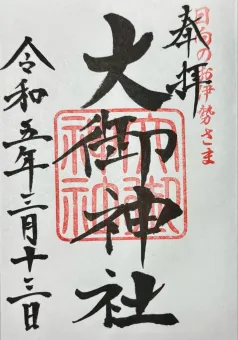 日向のお伊勢さま
奉拝
大御神社
大御神社
令和五年三月十三日